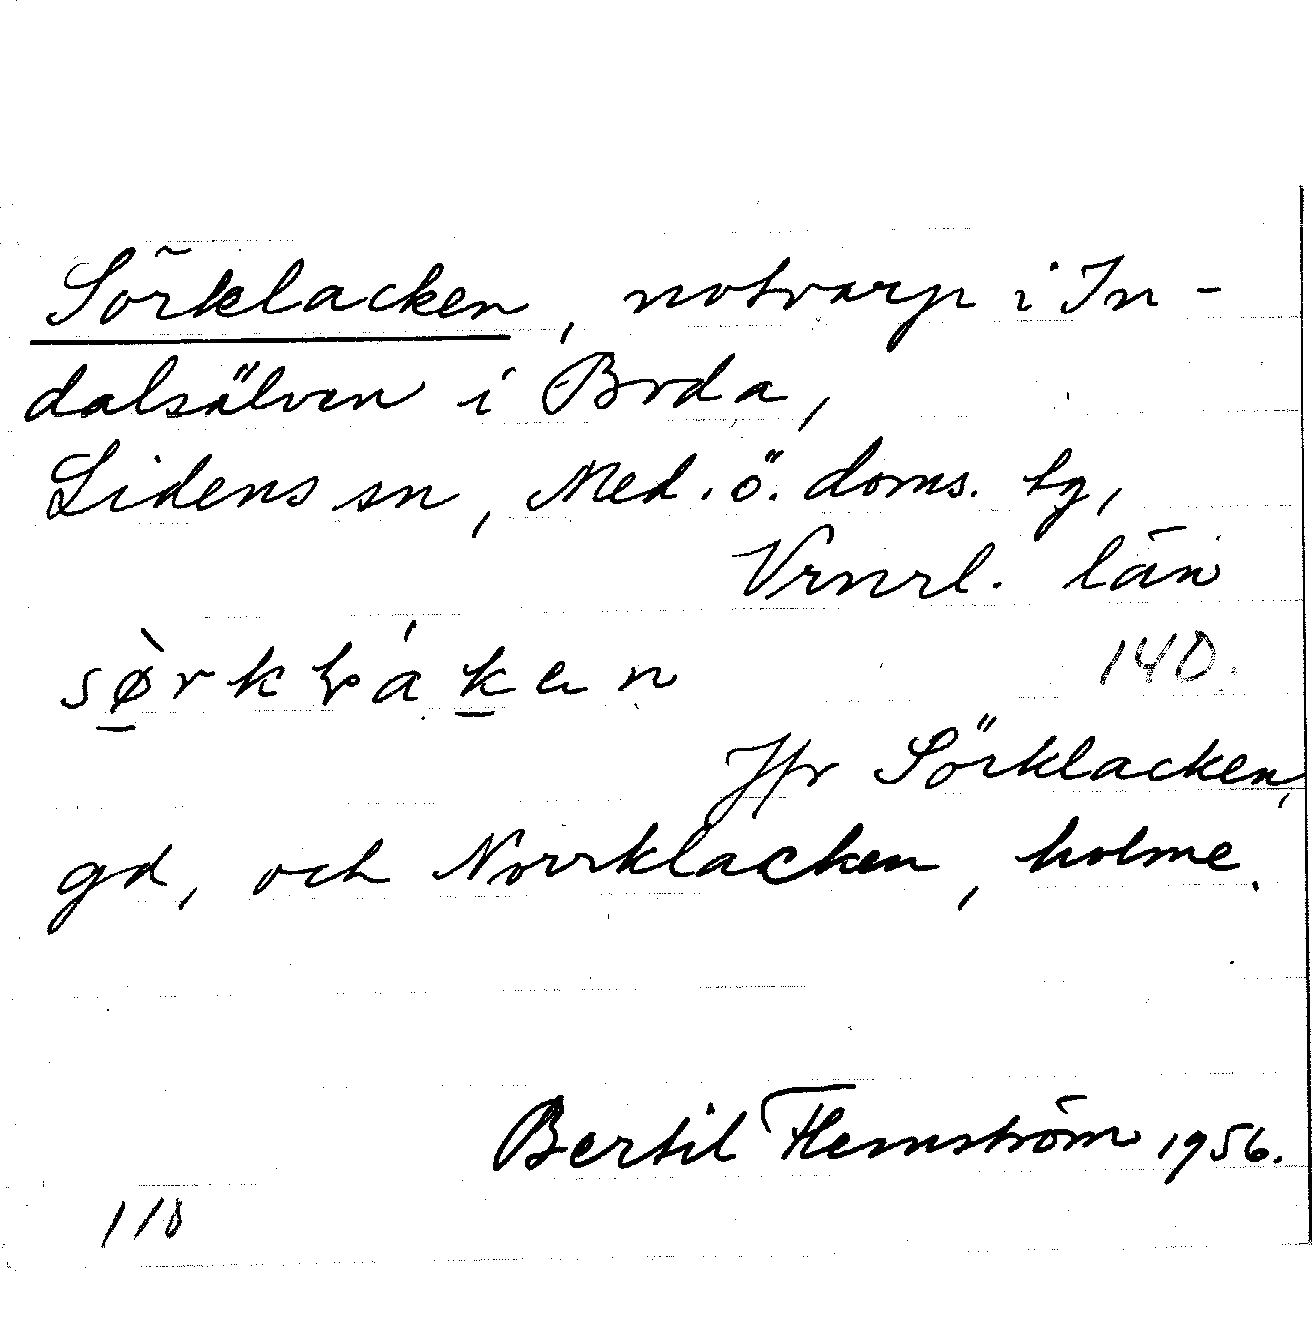 Sörklacken, notvarp i In-
dalsälven i Boda,
Lidens sn, Med. ö. doms. tg,
Vrnrl. län
sø̀rkɬákan
140.
Jfr Sörklacken,
gd, och Norrklacken, holme.
Bertil Flemström 1956.
118